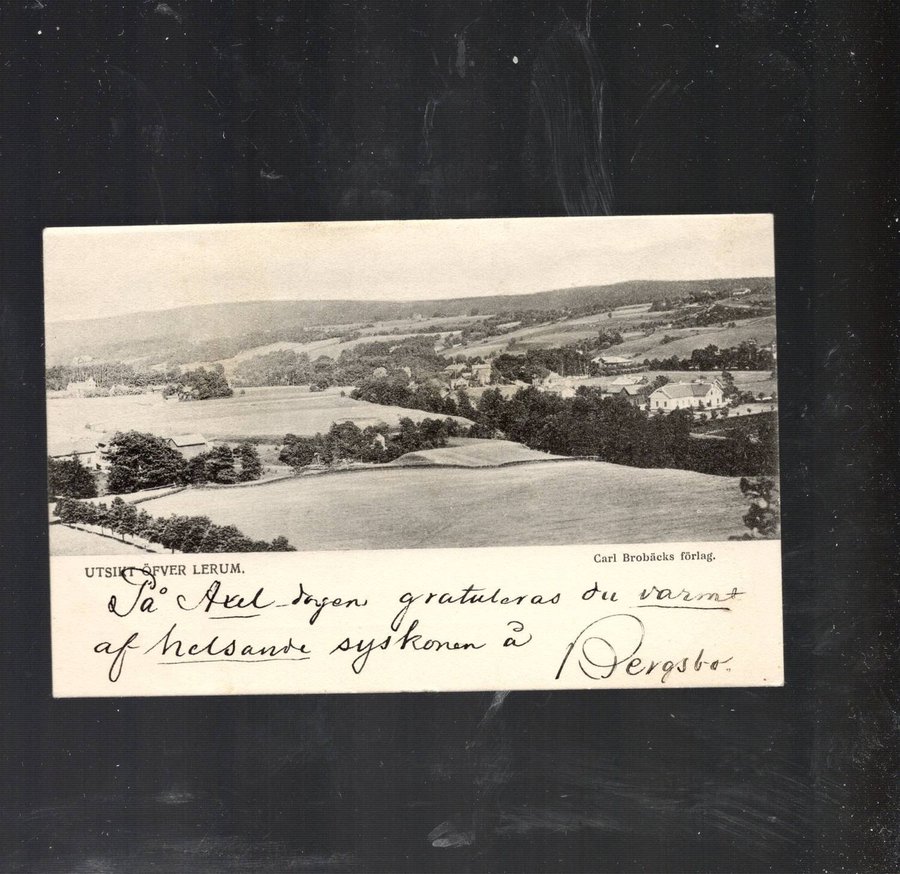 UTSIKT ÖFVER LERUM.
Carl Brobäcks förlag.
På Axel-dagen gratuleras du varmt
af helsande syskonen å Bergsbo.